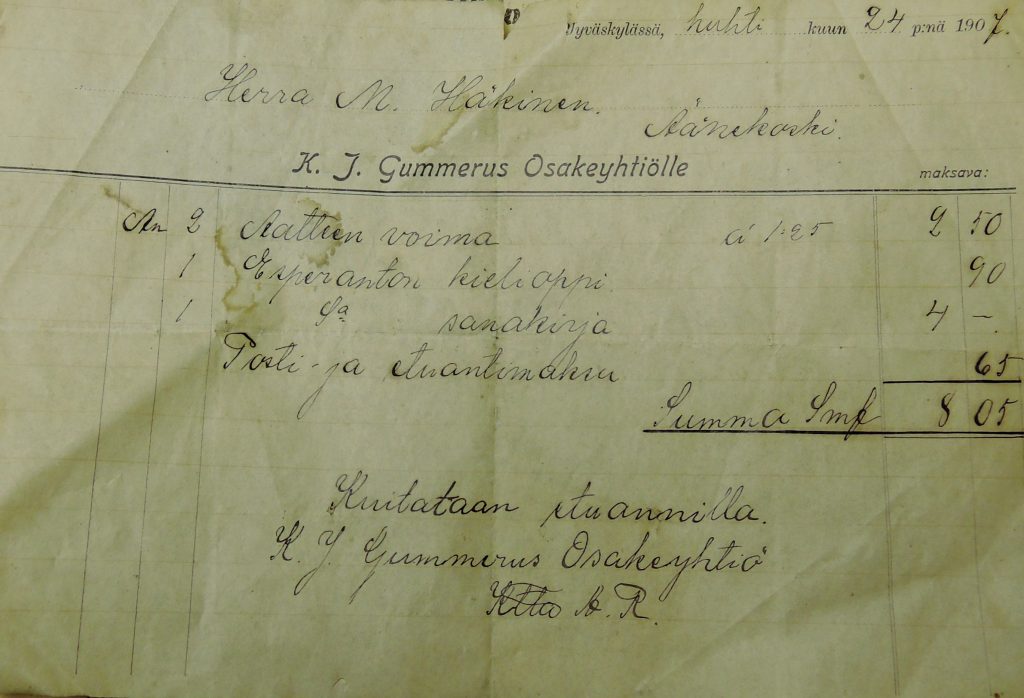 Jyväskylässä, huhti kuun 24 p:nä 1907.
Herra M. Häkinen.
Äänekoski.
K. J. Gummerus Osakeyhtiölle maksava:
An 2 Aatteen voima á 1:25 2 50
1 Esperanton kielioppi 90
1 Sa sanakirja 4 –.
Posti- ja etuantimaksu 65
Summa Smk 8 05
Kuitataan etuannilla.
K. J. Gummerus Osakeyhtiö
A. R.